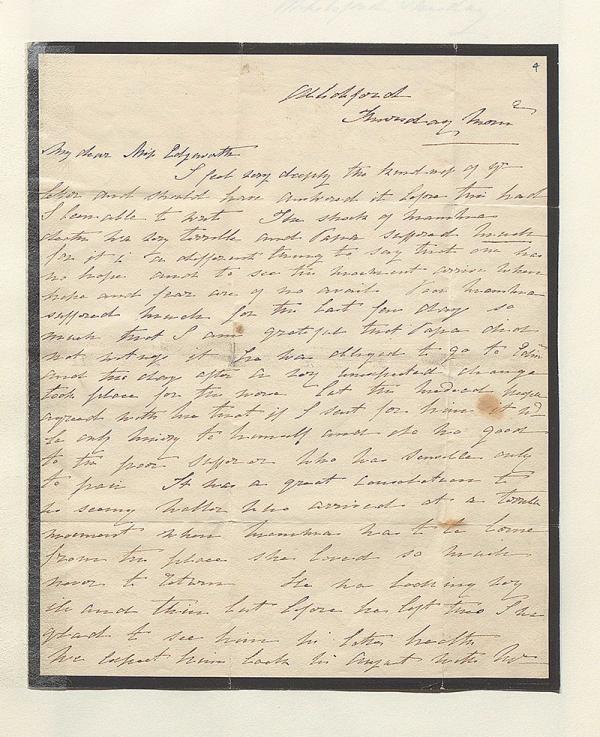 4
Abbotsford
Thursday Morng
My dear Miss Edgeworth
I feel very deeply the kindness of yr
letter and should have answered it before this had
I been able to write The shock of mamma
death was very terrible and Papa suffered much
for it is a different thing to say that one has
no hope and to see the moment arrive when
hope and fear are of no avail Poor mamma
suffered much for the last few days so
much that I am grateful that Papa did
not witness it he was obliged to go to Edinr
and the day after a very unexpected change
took place for the worse but the medical people
agreed with me that if I sent for him it wd
be only misery to himself and do no good
to the poor sufferer who was sensible only
to pain It was a great consolation to
us seeing Walter who arrived at a terrible
moment when mamma was to be borne
from the place she loved so much
never to return He was looking very
ill and thin but before he left this I was
glad to see him in better health
We expect him back in August with